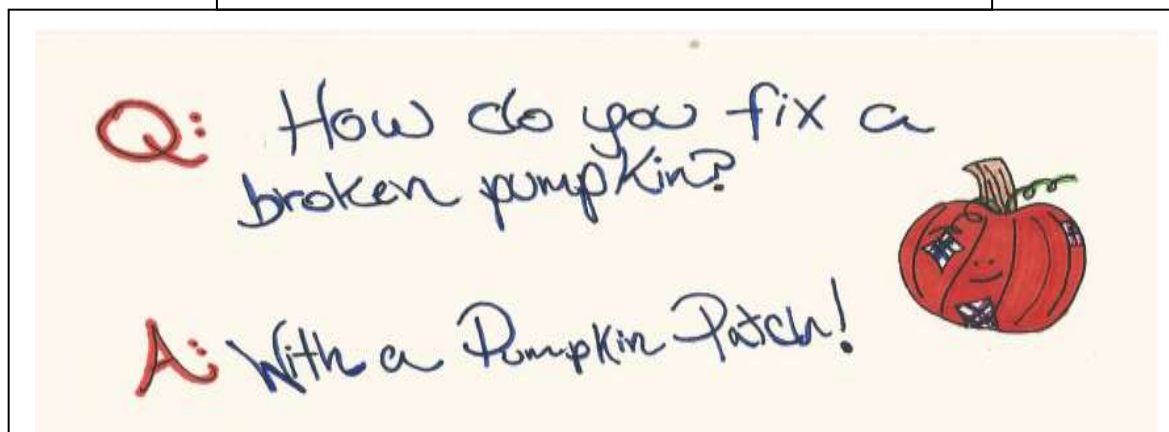 Q: How do you fix a
broken pumpkin?
A: With a Pumpkin Patch!